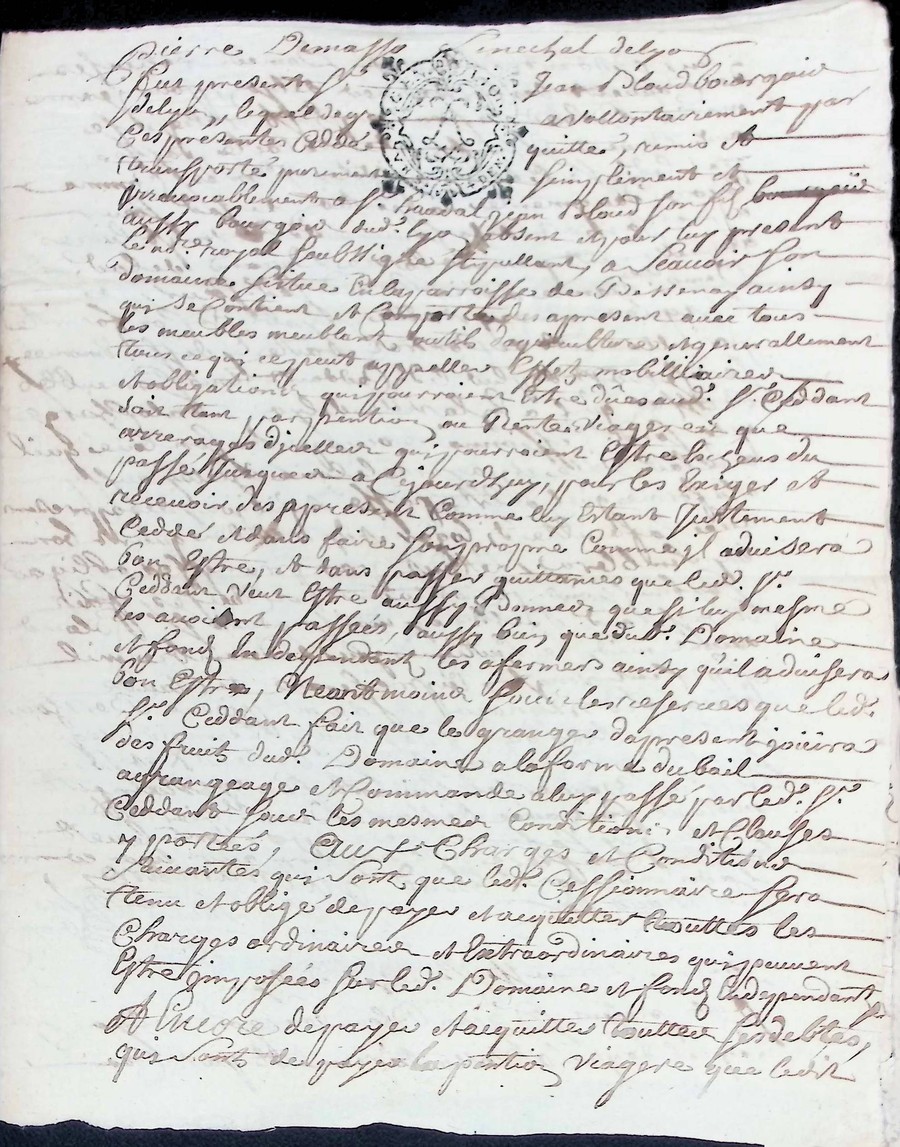 Pierre Demasso Senechal delyo
Fut present Sr. Jean Bloud bourgois
delyo, lequel degr a vollontairement par
Ces presentes Ceddé quitté, remis et
transporté purement simplement et
irrevocablement a Sr. Jean Bloud son fils
aussy bourgois dud. lyo, absent et pour luy present
le nre. royal soubsigné stipullant, a Scauoir son
domaine situé en la parroisse de Bessenay ainsy
qu'il se Contient et Comporte des apresent auec tous
les meubles meublant outils dagriculture et generallement
tous ce qui ce peut appeller Effets mobilliaires
et obligations qui pourroient Estre dües aud. Sr. Ceddant
soit tant par pention ou Rentes viageres que
arrerages d'jcelles qui pourroient Estre Echeus du
passé Jusques a Cejourdhuy, pour les Exiger et
receuoir des apresent Comme luy Estant Justement
Ceddé et dans faire son propre Comme jl aduisera
bon Estre, et dans passer quittances que led. Sr.
Ceddant veut Estre aussy Bonnes que si luy mesme
les auoient passées, aussy bien que dud. Domaine
et fond En dependant, les afermer ainsy qu'il aduisera
bon Estre, Neantmoins sous les reserues que led.
Sr. Ceddant fait que le granger dapresent joüira
des fruits dud. Domaine a la forme du bail
a grangeage et Commande a luy passé par led. Sr.
Ceddant sous les mesmes Conditions et Clauses
y portées, Aux Charges et Conditions
Suiuantes qui sont que led. Cessionnaire sera
tenu et obligé de payer et acquitter touttes les
Charges ordinaires et Extraordinaires qui peuuent
Estre jmposées sur led. Domaine et fond En dependant
Et Encore de payer et acquitter touttes ses debtes,
qui sont de payer la pention viagere que ledit